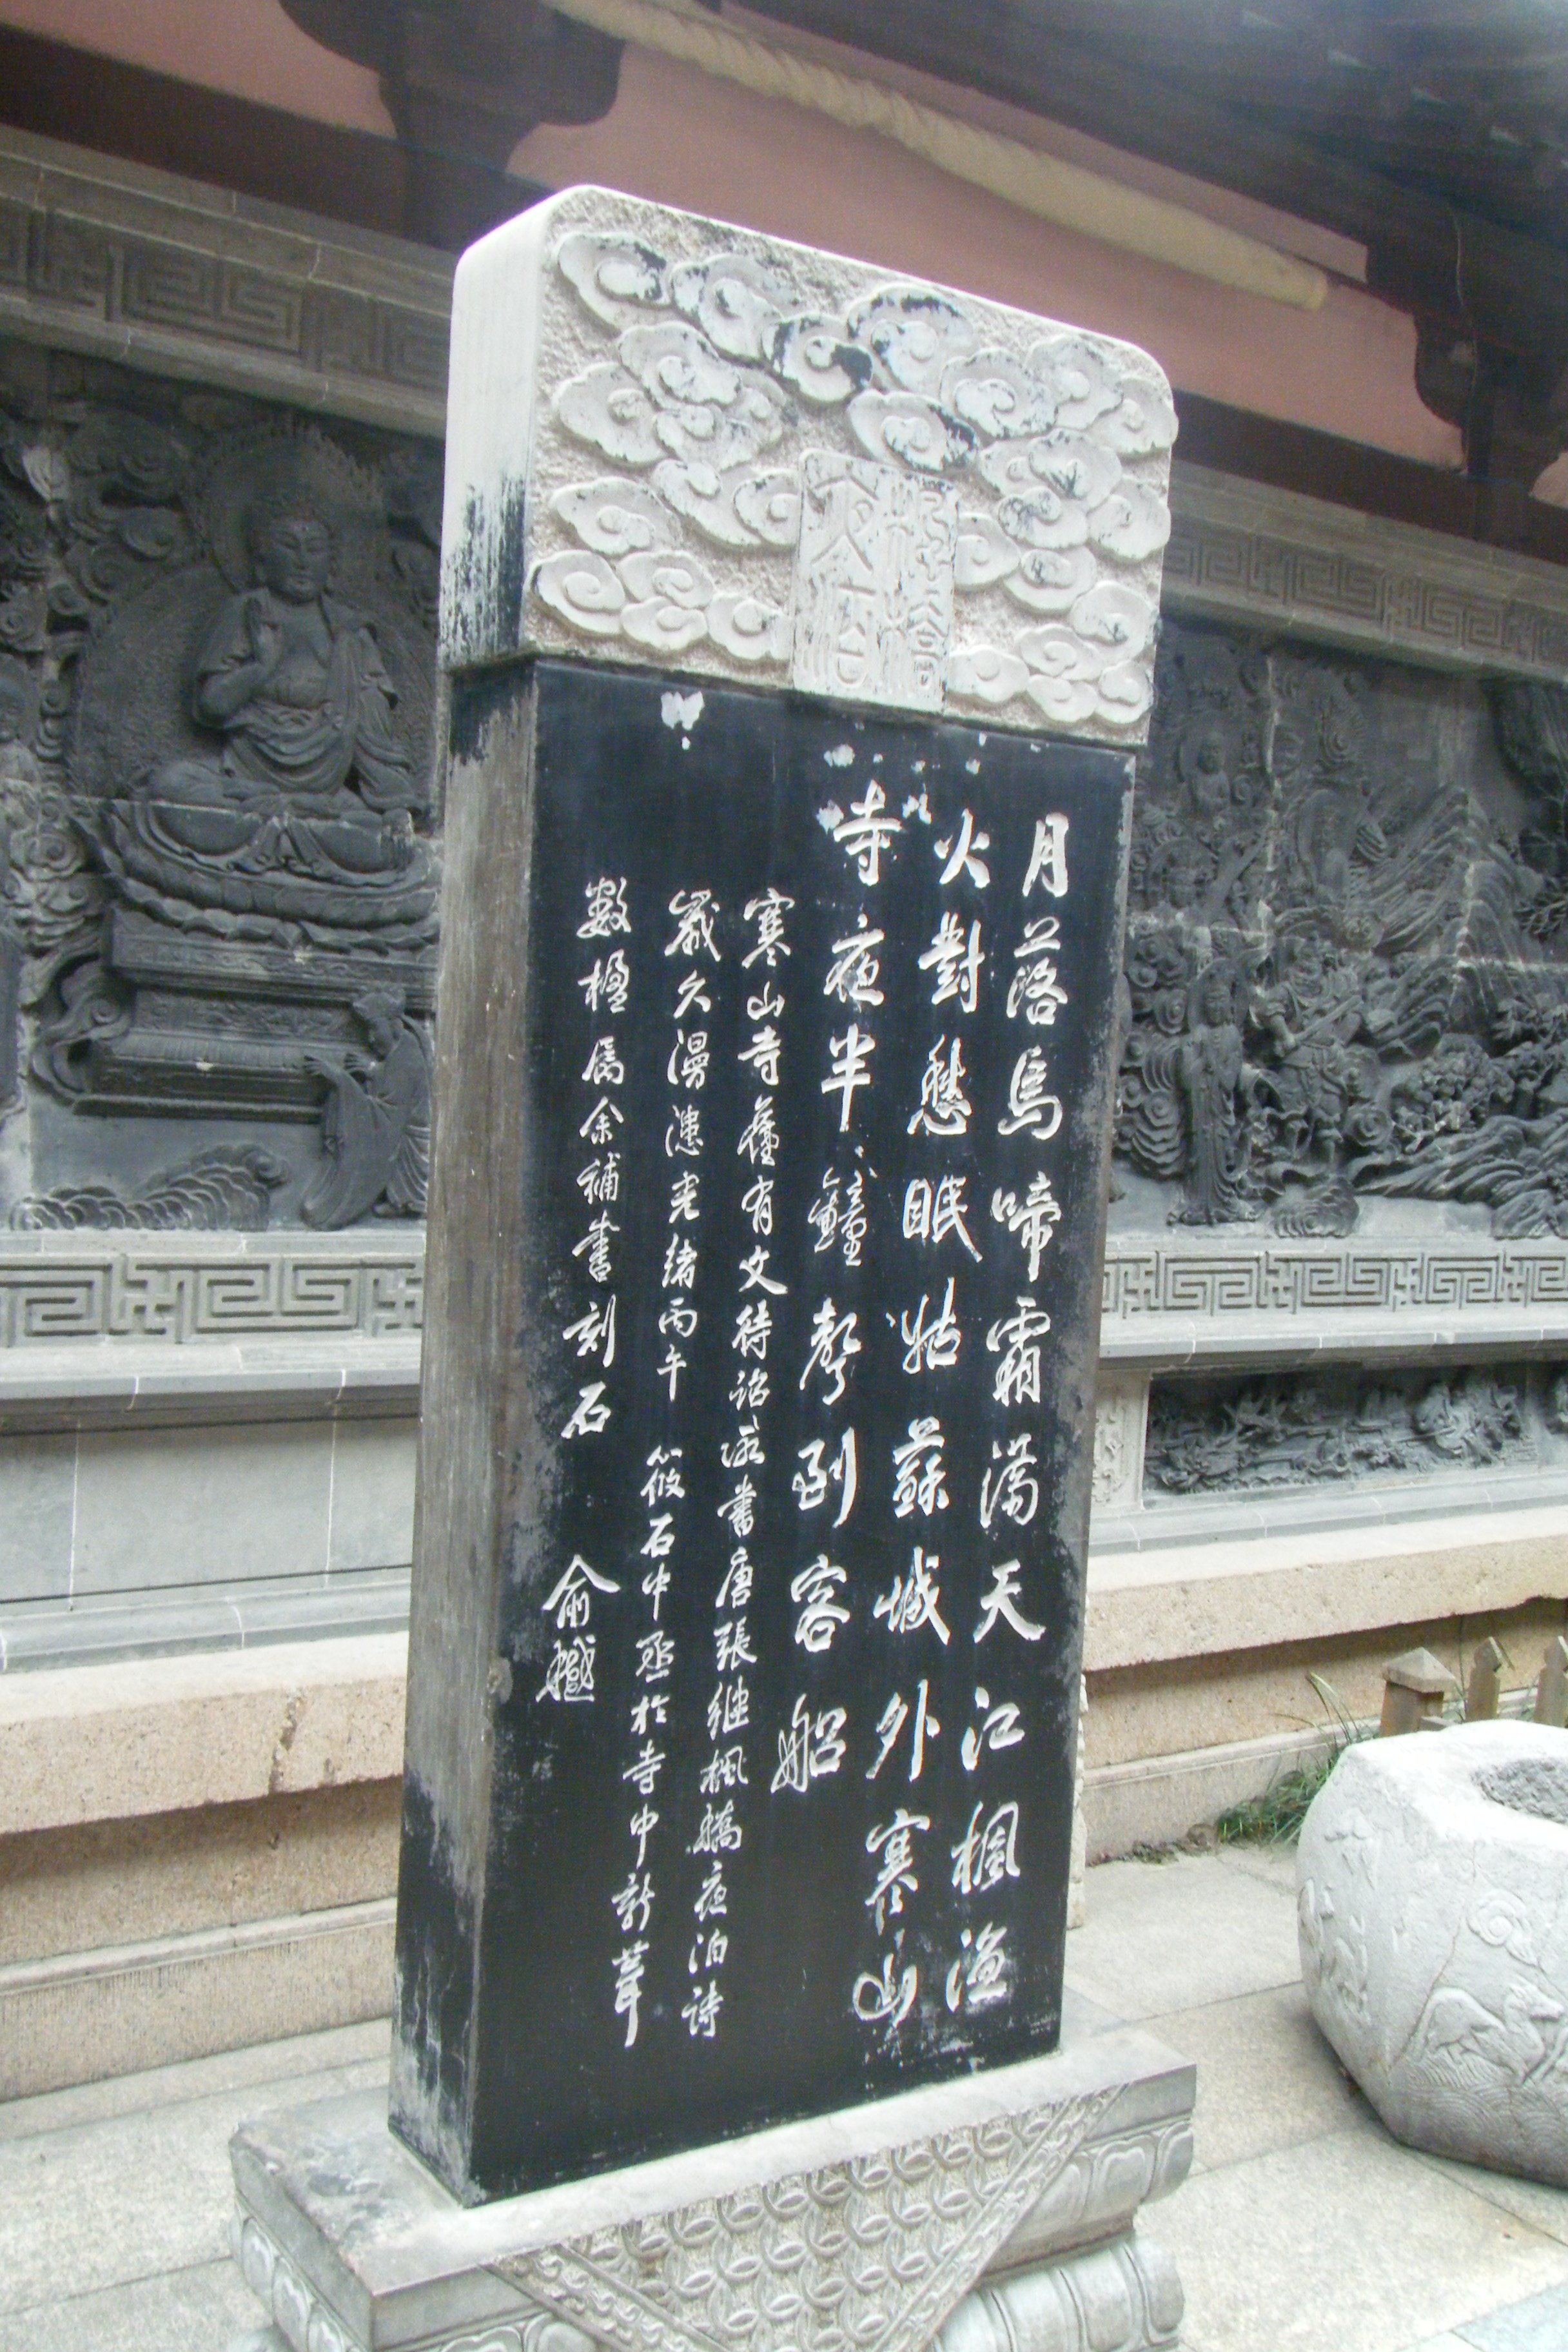 楓橋
夜泊
月落烏啼霜滿天江楓漁
火對愁眠姑蘇城外寒山
寺夜半鐘聲到客船
寒山寺舊有文待詔所書唐張継楓橋夜泊詩
歲久漫漶光緒丙午筱石中丞於寺中新葺
數楹屬余補書刻石
俞樾